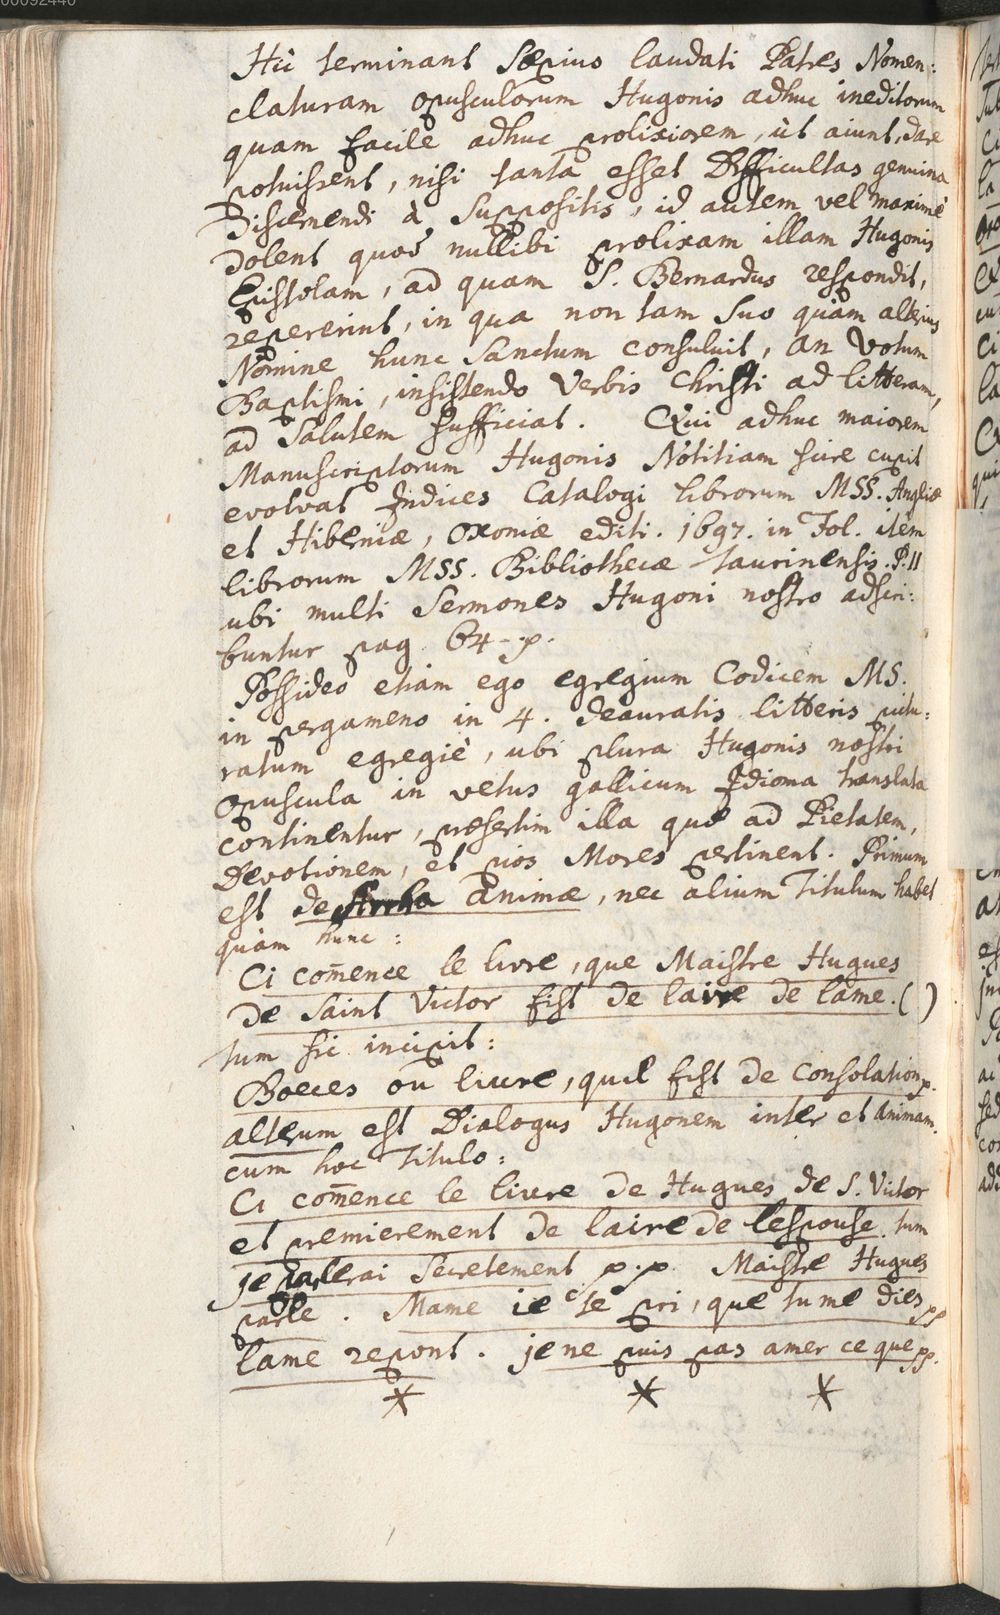 00092440
Hic terminant sæpius laudati Patres Nomen:
claturam opusculorum Hugonis adhuc ineditorum
quam facile adhuc prolixiorem, ùt aiunt, dare
potuissent, nisi tanta esset Difficultas genuina
Discernendi à suppositis, id autem vel maximè
dolent quod nullibi prolixam illam Hugonis
Epistolam, ad quam S. Bernardus respondit,
repererint, in qua non tam suo quàm alterius
Nomine hunc Sanctum consuluit, an votum
Baptismi, insistendo verbis Christi ad litteram,
ad Salutem sufficiat. Qui adhuc maiorem
Manuscriptorum Hugonis Notitiam scire cupit
evolvat Indices Catalogi librorum MSS. Angliæ
et Hiberniæ, Oxoniæ editi. 1697. in Fol. item
librorum MSS. Bibliothecæ taurinensis. P. II
ubi multi Sermones Hugoni nostro adscri:
buntur pag 64 - p.
Possideo etiam ego egregium Codicem MS.
in pergameno in 4. deauratis litteris pictu:
ratum egregiè, ubi plura Hugonis nostri
opuscula in vetus gallicum Idioma translata
continentur, præsertim illa quæ ad Pietatem,
Devotionem, et pios Mores pertinent. Primum
est de Arrha animæ, nec alium Titulum habet
quàm hunc:
Ci com̄ence le livre, que Maistre Hugues
de Saint Victor fist de laire de lame. ( )
tum sic incipit:
Boeces ou liure, quil fist de Consolation p.
alterum est Dialogus Hugonem inter et animam.
cum hoc Titulo:
Ci com̄ence le liure de Hugues de S. Victor
et premierement de laire de lespouse. tum
je parlerai Secretement p. p. Maistre Hugues
parle. Mame ie te pri, que tu me dies pp
lame repont. je ne puis pas amer ce que pp.
* * *